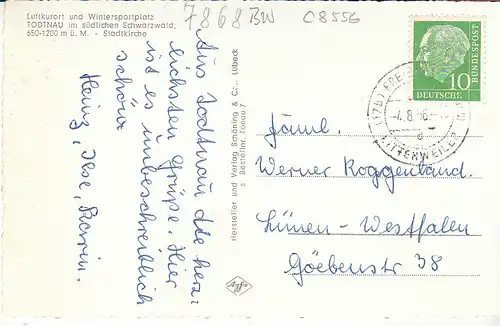 Luftkurort und Wintersportplatz
TODTNAU im südlichen Schwarzwald,
650-1200 m ü. M. - Stadtkirche
7868 BW 08556
Aus Todtnau die herz-
lichsten Grüße. Hier
ist es unbeschreiblich
schön
Heinz, Ilse,
Hersteller und Verlag Schöning & Co., Lübeck
s Bestellnr. Tonau 7
Agfa
DEUTSCHE
BUNDESPOST
10
(17b)
-4.8.56.
LITTENWEILER
Faml.
Werner Roggenland.
Lünen-Westfalen
Göebenstr 38